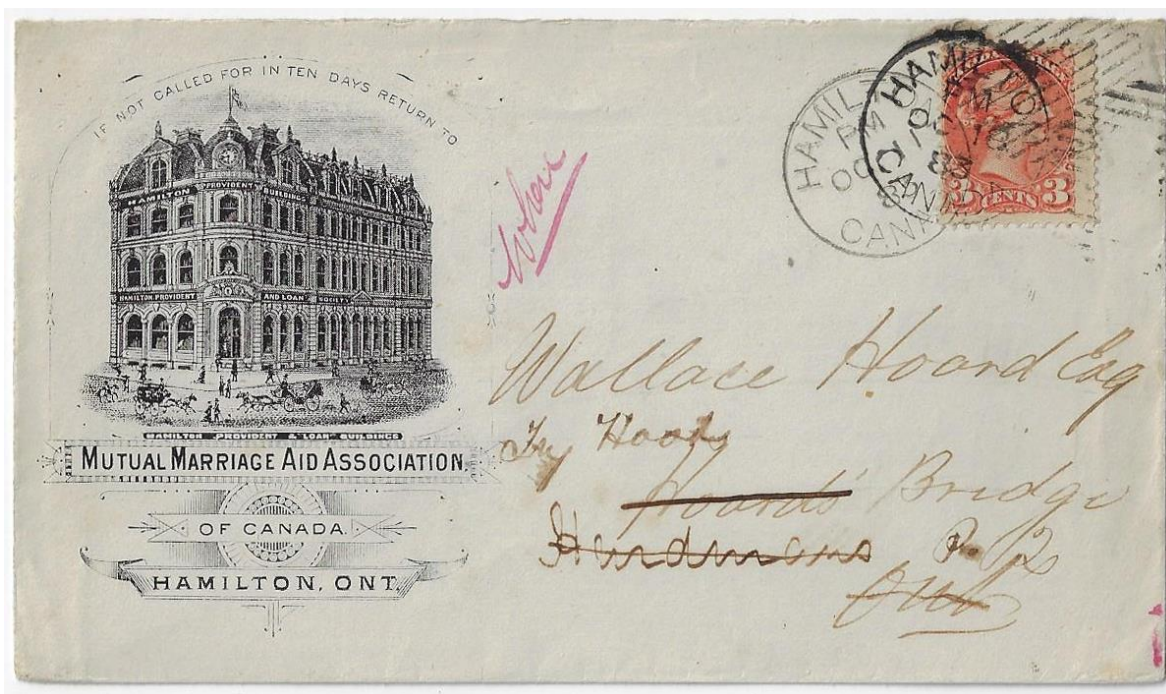 IF NOT CALLED FOR IN TEN DAYS RETURN TO
HAMILTON PROVIDENT BUILDINGS
HAMILTON PROVIDENT AND LOAN SOCIETY
HAMILTON PROVIDENT & LOAN BUILDINGS
MUTUAL MARRIAGE AID ASSOCIATION
OF CANADA.
HAMILTON, ONT.
Where
HAMIL
PM
OC
CANA
HAMILTON
PM
OC 1
83
CANADA
3 CENTS 3
Wallace Hoard Esq
Try Hoods
Hoards Bridge
Hurdmans P.
Ont